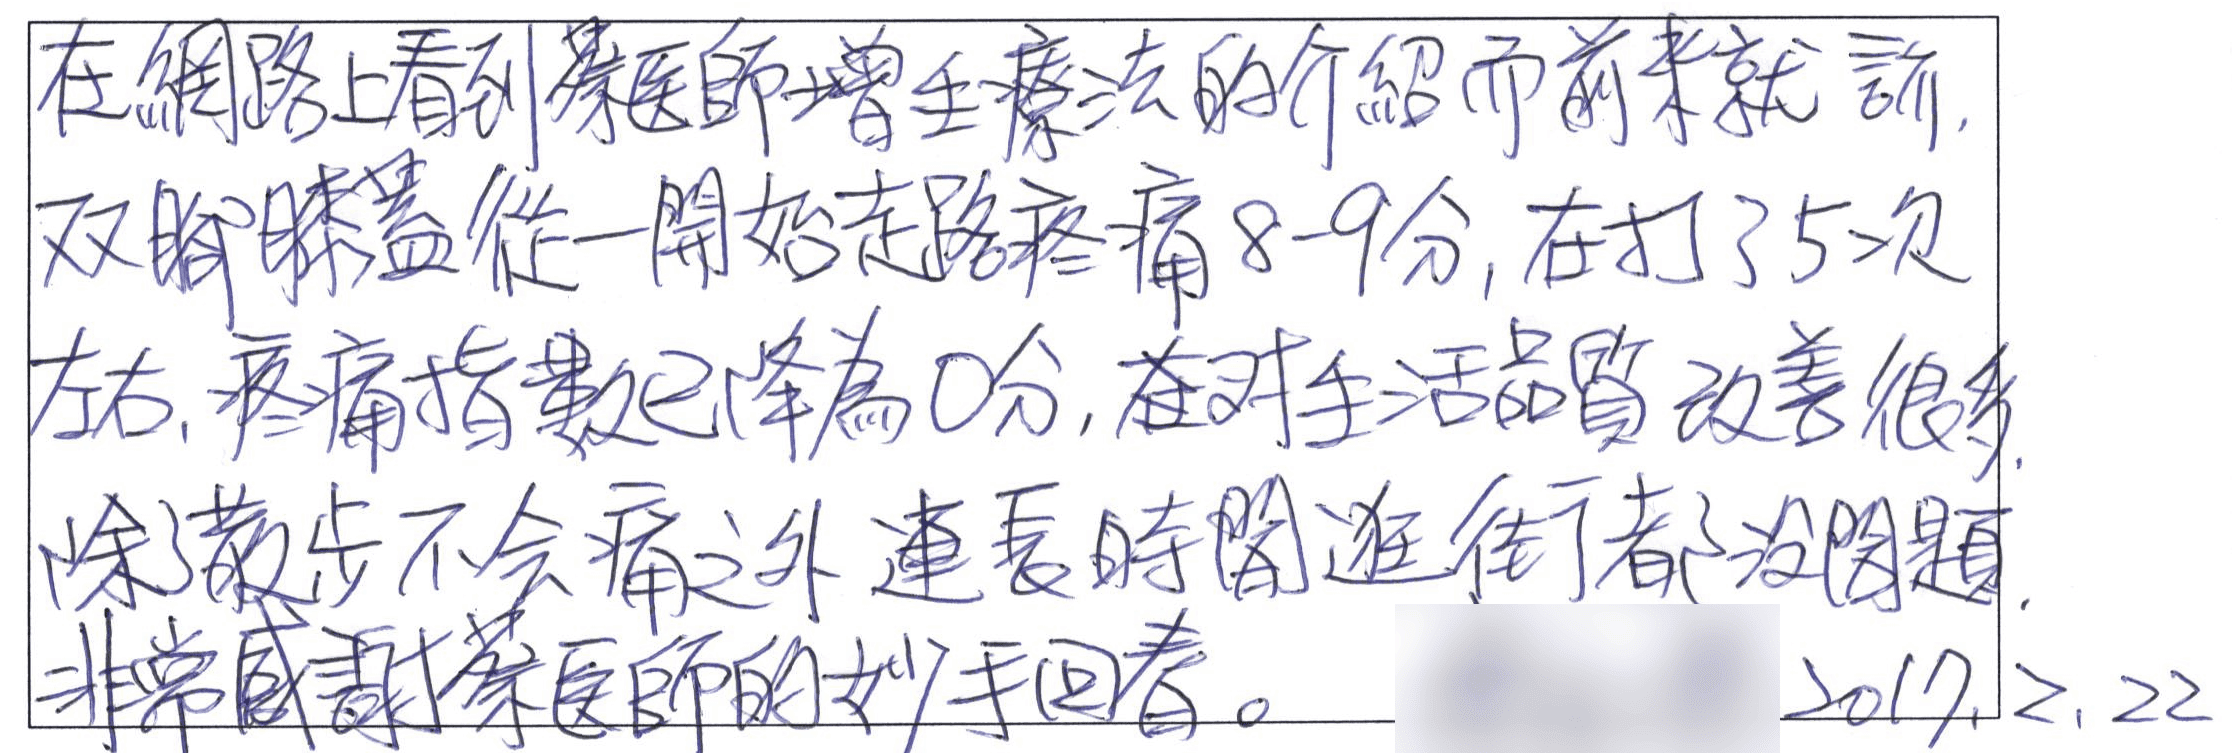 在網路上看到蔡医師增生療法的介紹而前來就診.
双腳膝蓋從一開始走路疼痛8-9分,在打了5次
左右,疼痛指數已降為0分,在对生活品質改善很多.
除了散步不会痛之外連長時間逛街都沒問題.
非常感謝蔡医師的妙手回春。 2017.2.22